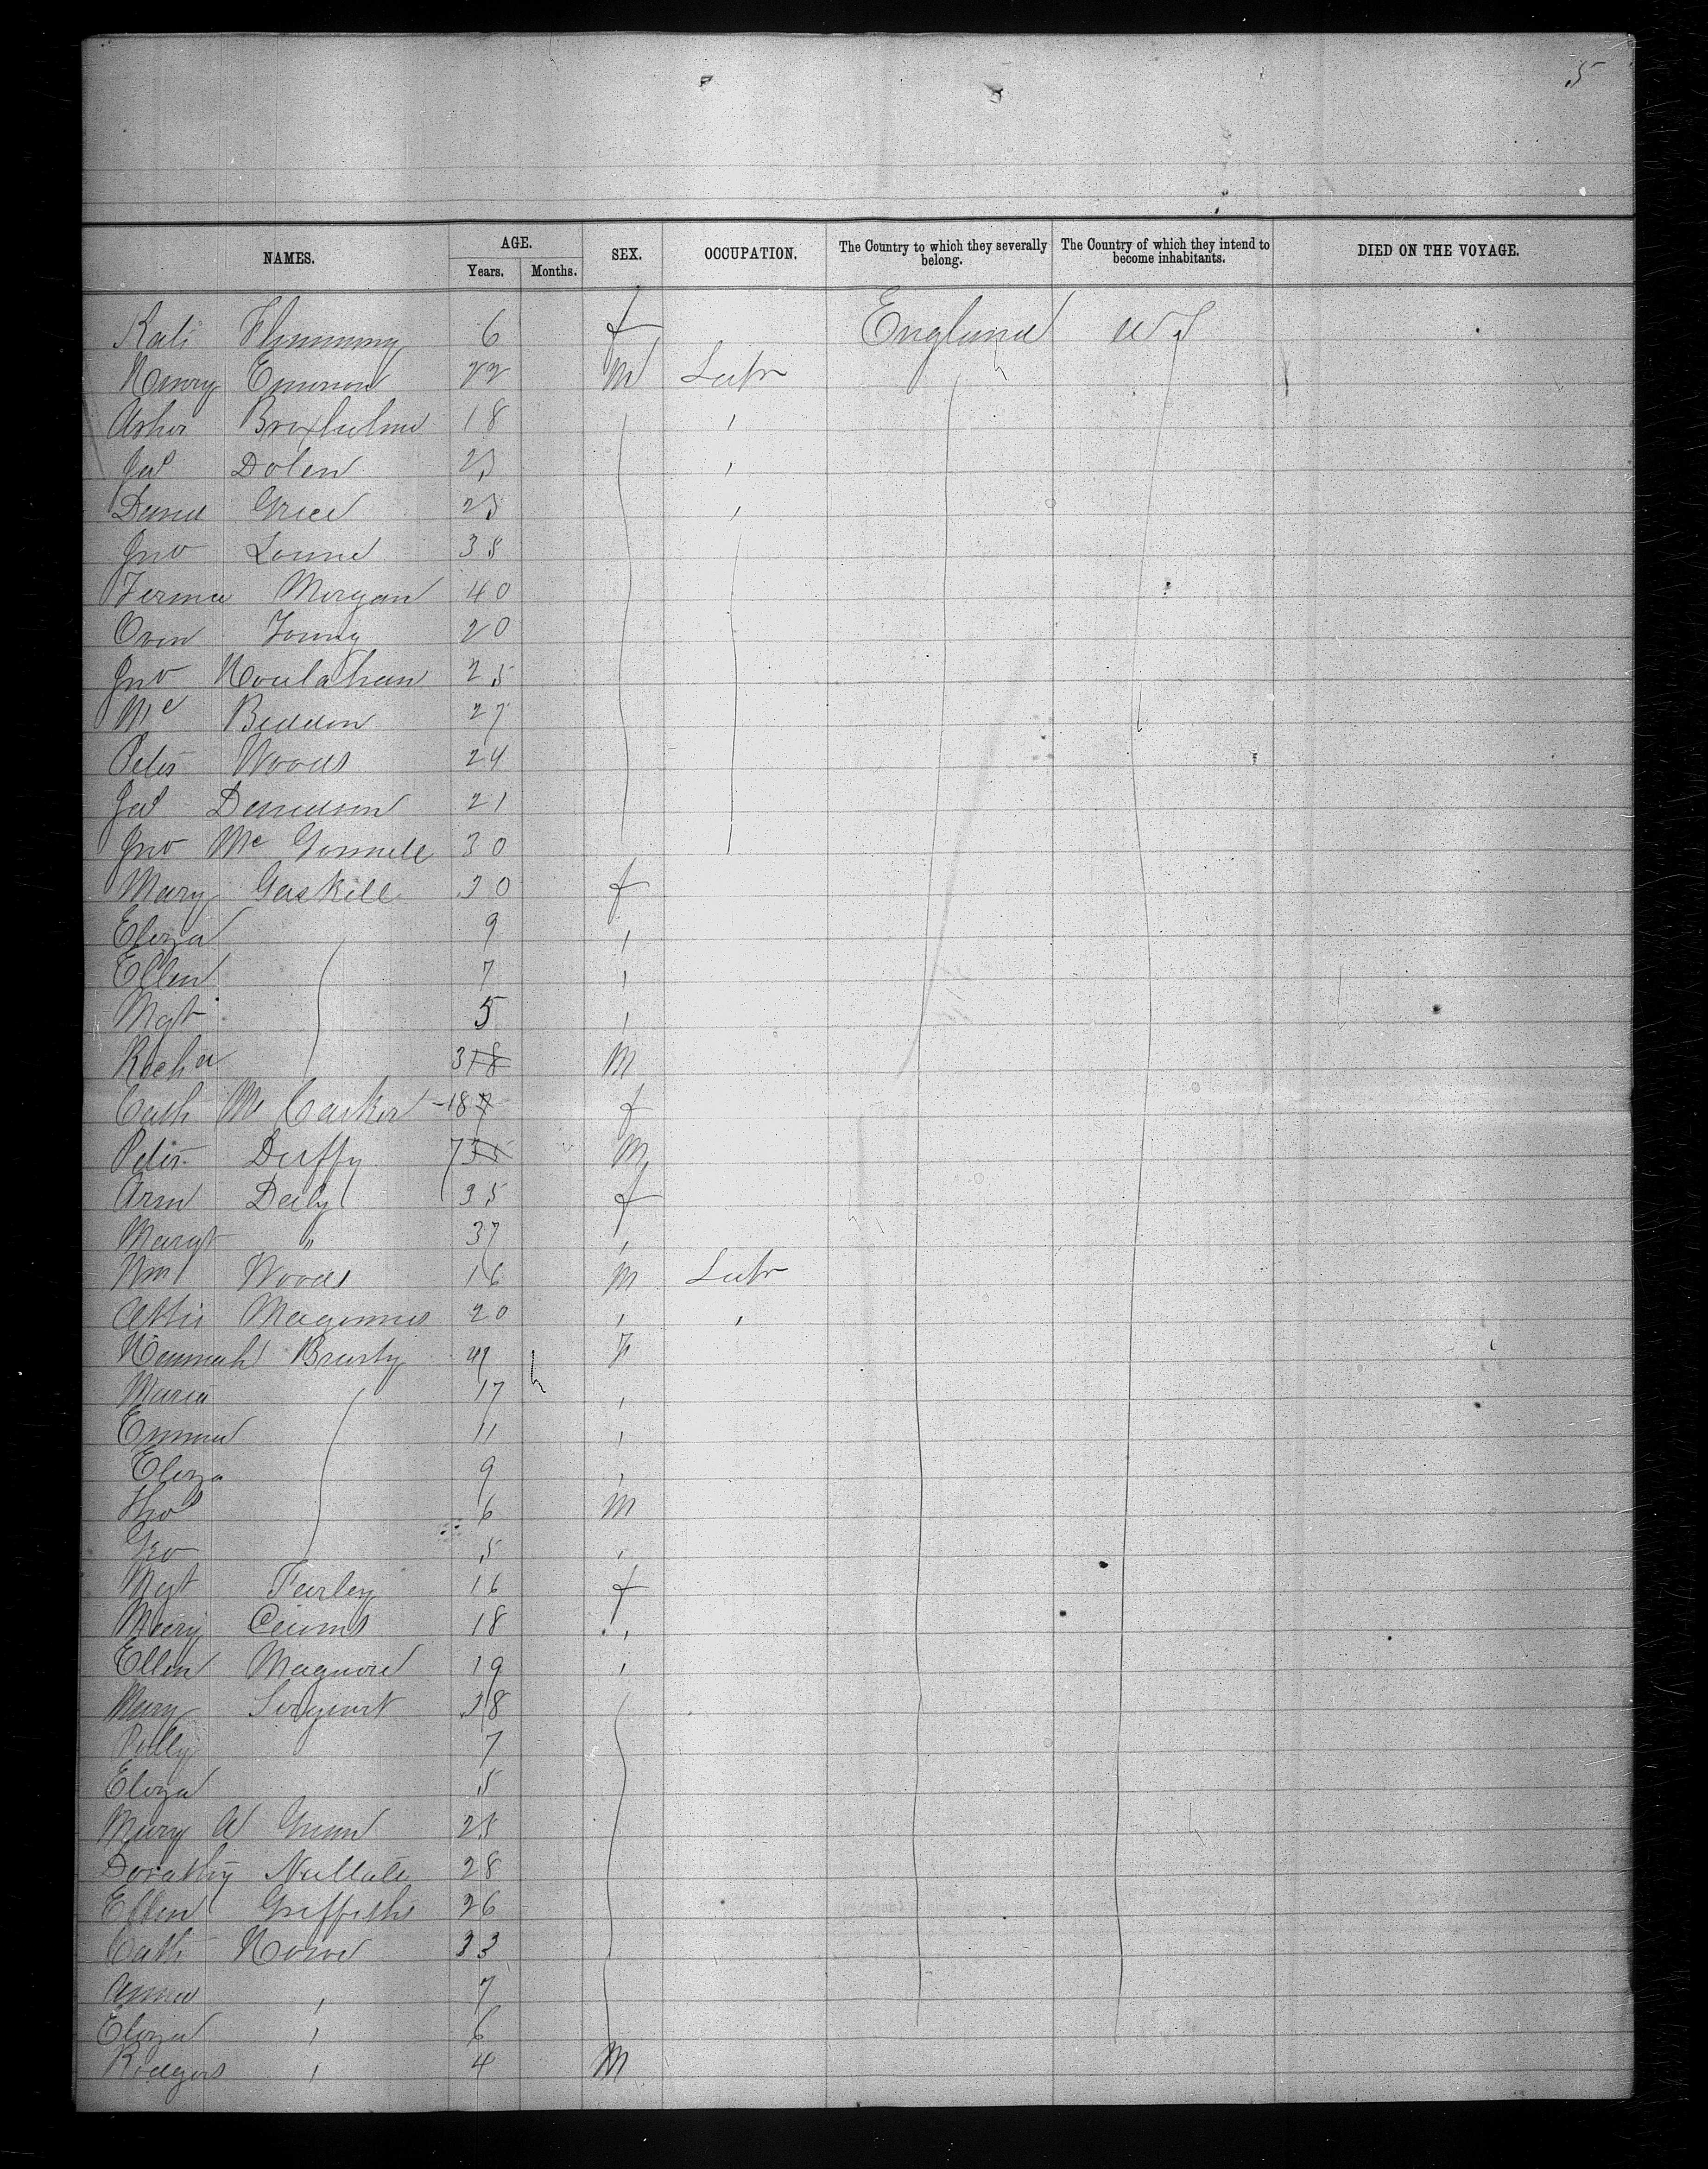 5
NAMES. AGE. SEX. OCCUPATION. The Country to which they severally belong. The Country of which they intend to become inhabitants. DIED ON THE VOYAGE.
Years. Months.
Kati Flemming 6 f England US
Henry Emerson 22 M Labr
Asher Broxholme 18 "
Jas Dolen 23 "
Grice 25 "
Jno 35
Morgan 40
Owen Young 20
Jno Houlahan 25
Mc Beddon 27
Peter Woods 24
Jas Davidson 21
Jno Mc Gonnell 30
Mary Gaskell 30 f
Eliza 9 "
Ellen 7 "
Mgt 5 "
Richd 3 M
Cath Mc Casker 18 f
Peter Duffy 7 M
Ann Daily 35 f
Margt " 37 "
Wm Woods 16 M Labr
Maginnis 20 " "
Hannah Brasty 41 F
Maria 17 "
Emma 11 "
Eliza 9 "
Tho 6 M
Geo 5 "
Mgt Farley 16 f
Mary Cairns 18 "
Ellen Maguire 19 "
Mary Sergeant 38
Polly 7
Eliza 5
Mary A Green 25
Dorathy 28
Ellen Griffiths 26
Cath Howe 33
Anna " 7
Eliza " 6
Rodgers " 4 M